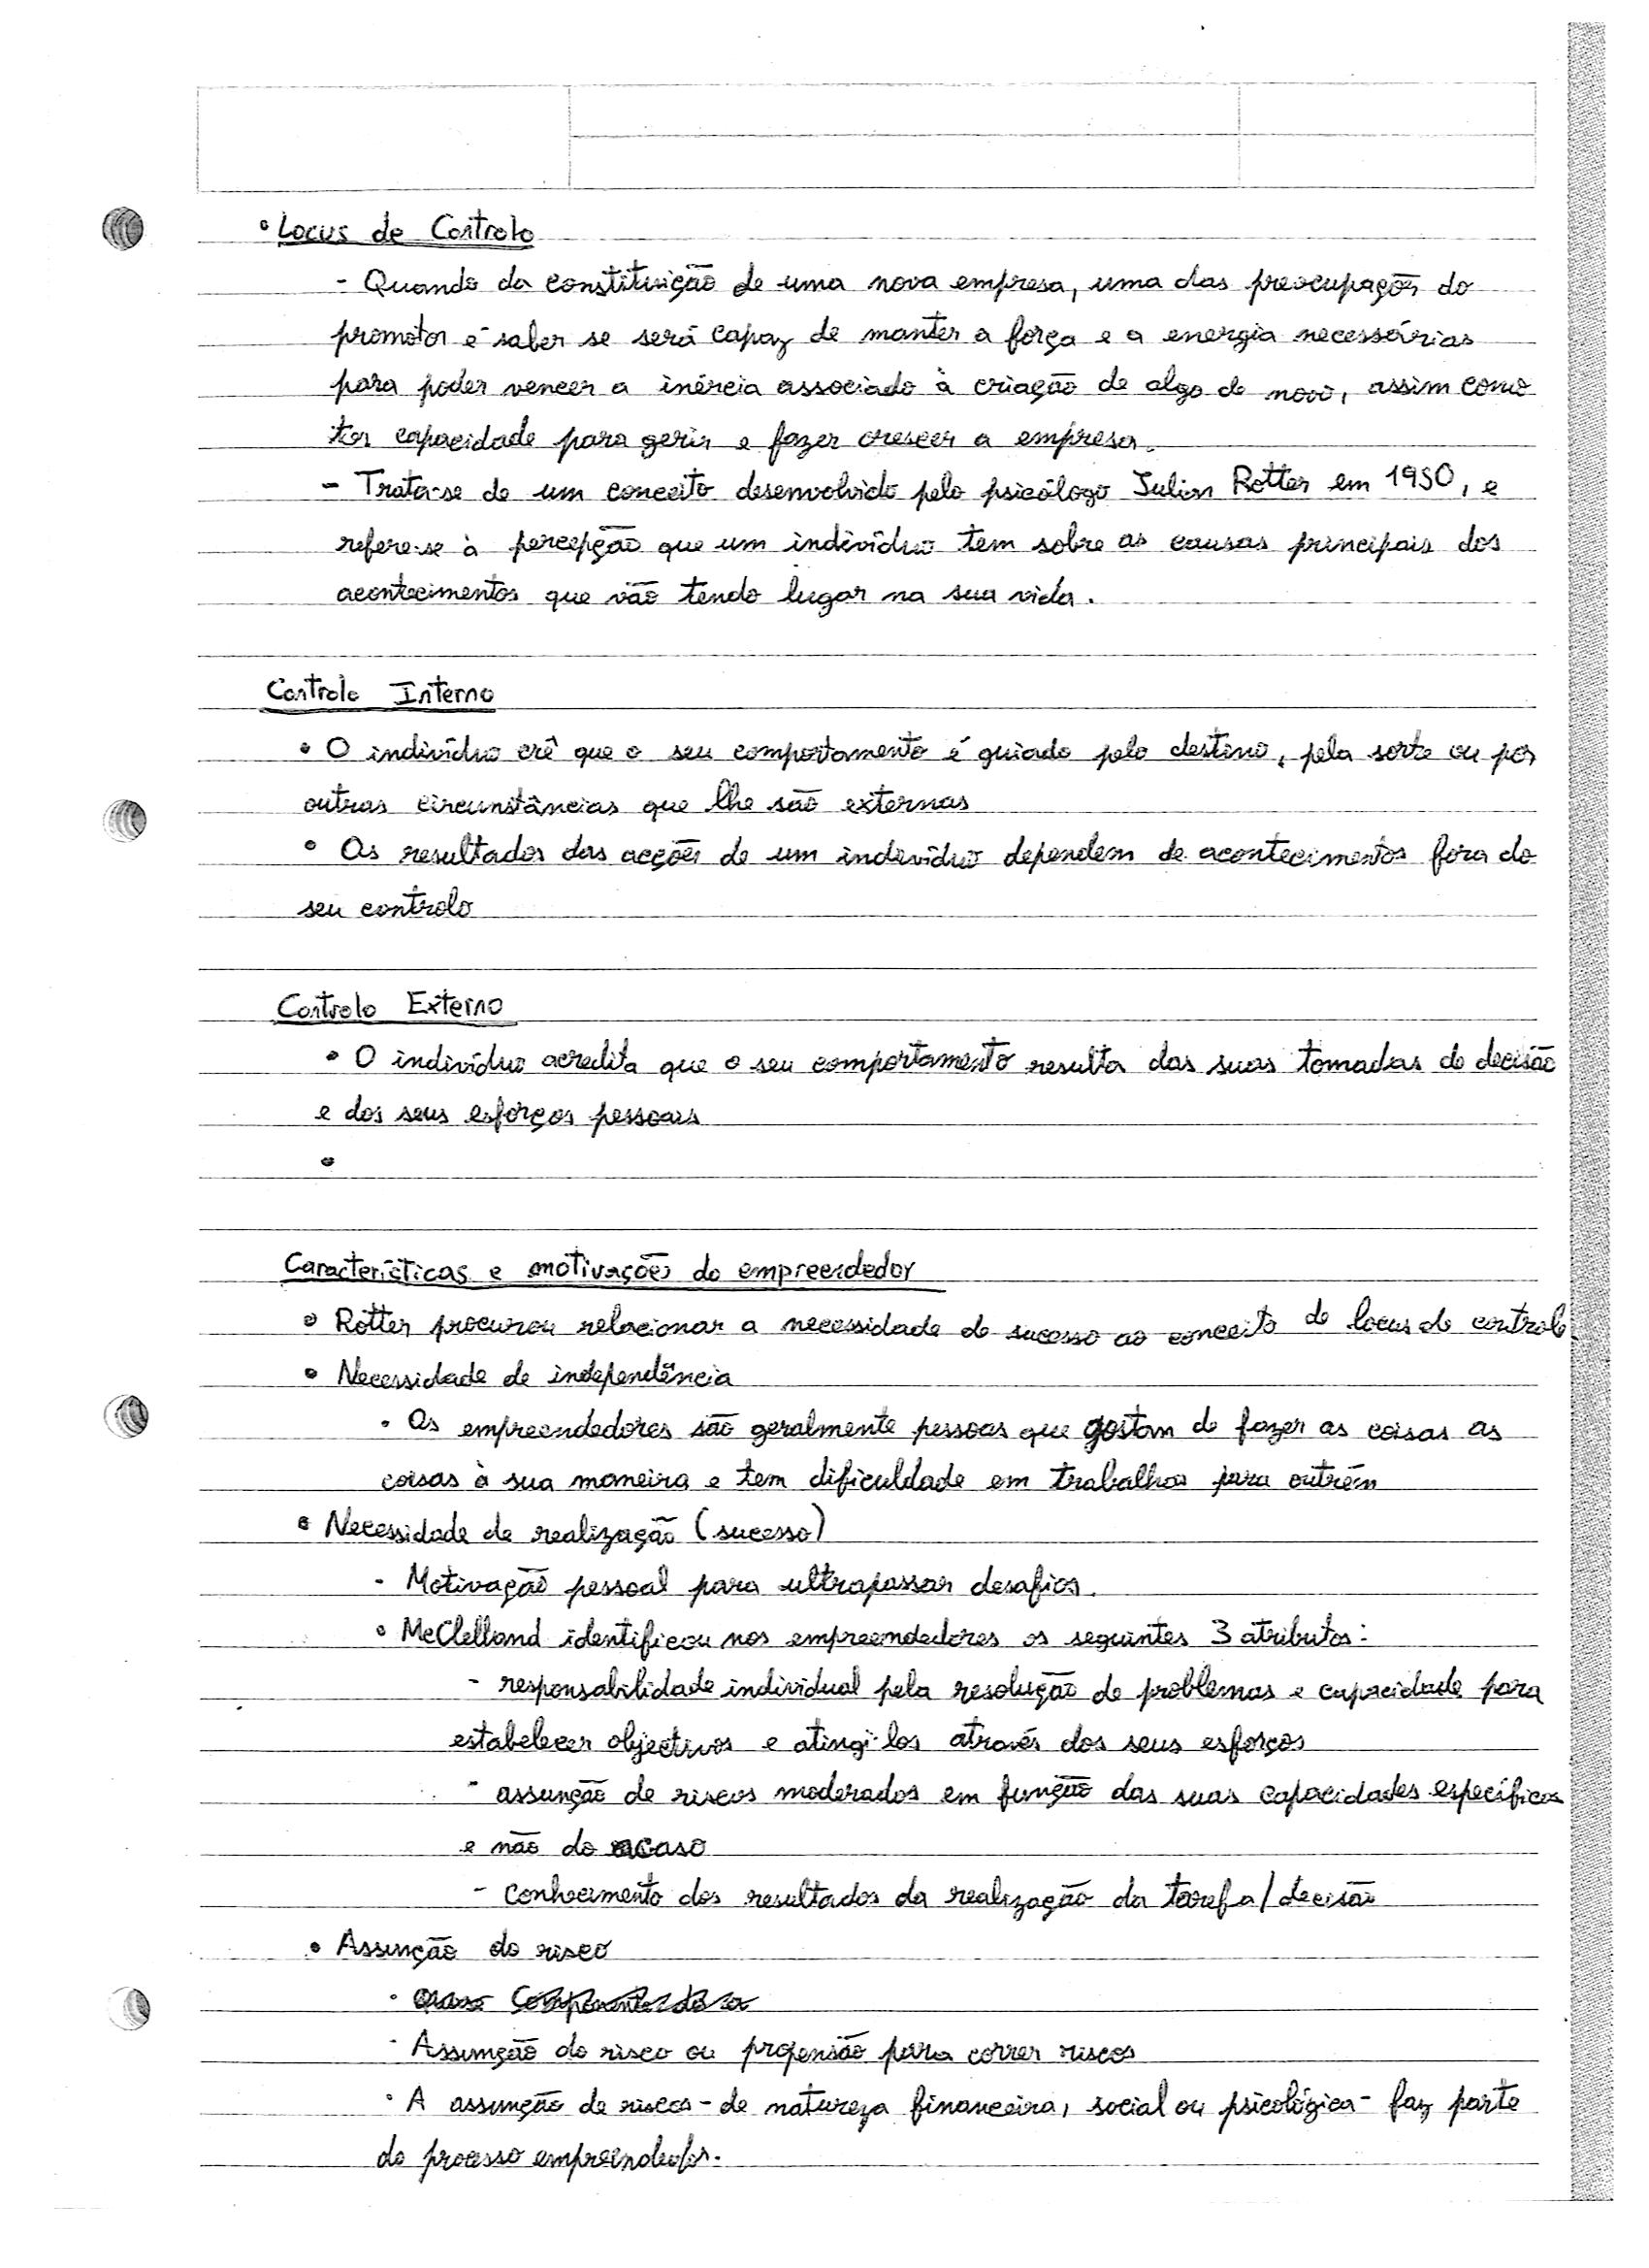 • Locus de Controlo
- Quando da constituição de uma nova empresa, uma das preocupações do
promotor é saber se será capaz de manter a força e a energia necessárias
para poder vencer a inércia associado à criação de algo de novo, assim como
ter capacidade para gerir e fazer crescer a empresa.
- Trata-se de um conceito desenvolvido pelo psicólogo Julian Rotter em 1950, e
refere-se à percepção que um indivíduo tem sobre as causas principais dos
acontecimentos que vão tendo lugar na sua vida.
Controlo Interno
• O indivíduo crê que o seu comportamento é guiado pelo destino, pela sorte ou por
outras circunstâncias que lhe são externas
• Os resultados das acções de um indivíduo dependem de acontecimentos fora do
seu controlo
Controlo Externo
• O indivíduo acredita que o seu comportamento resulta das suas tomadas de decisão
e dos seus esforços pessoais
•
Características e motivações do empreendedor
• Rotter procurou relacionar a necessidade de sucesso ao conceito de locus de controlo
• Necessidade de independência
• Os empreendedores são geralmente pessoas que gostam de fazer as coisas as
coisas à sua maneira e tem dificuldade em trabalhar para outrém
• Necessidade de realização (sucesso)
- Motivação pessoal para ultrapassar desafios.
• McClelland identificou nos empreendedores os seguintes 3 atributos:
- responsabilidade individual pela resolução de problemas e capacidade para
estabelecer objectivos e atingi-los através dos seus esforços
- assunção de riscos moderados em função das suas capacidades específicas
e não do acaso
- conhecimento dos resultados da realização da tarefa/decisão
• Assunção do risco
- Assunção do risco ou propensão para correr riscos
• A assunção de riscos - de natureza financeira, social ou psicológica - faz parte
do processo empreendedor.